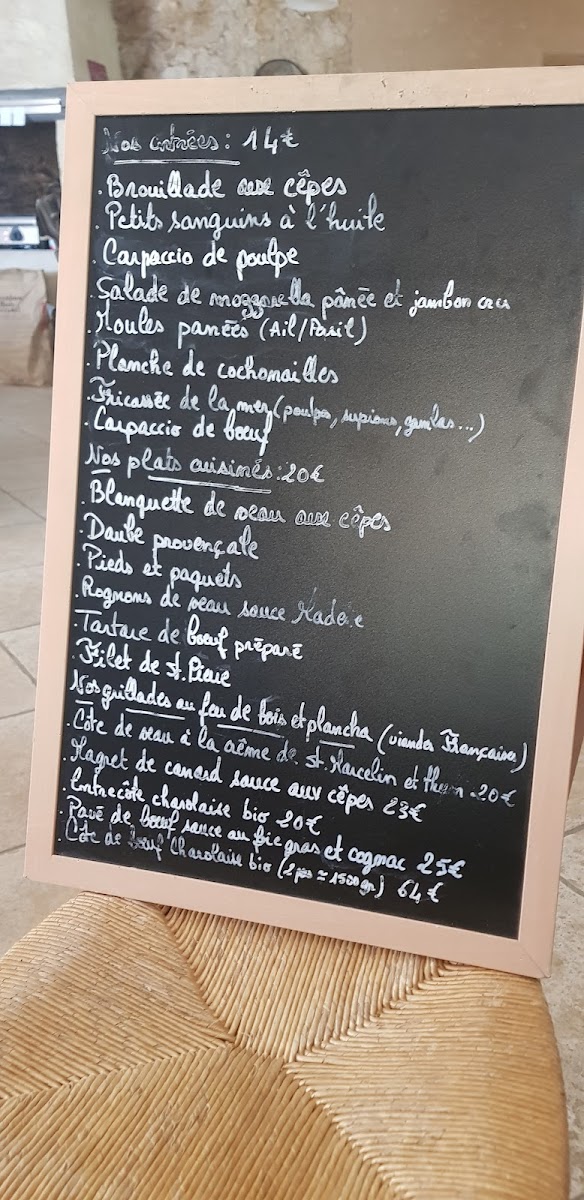 Nos entrées : 14€
. Brouillade aux cêpes
. Petits sanguins à l'huile
. Carpaccio de poulpe
. Salade de mozzarella pânée et jambon crus
. Moules panées (Ail/Persil)
. Planche de cochonailles
. Fricassée de la mer (poulpes, supions, gambas...)
. Carpaccio de boeuf
Nos plats cuisinés : 20€
. Blanquette de veau aux cêpes
. Daube provençale
. Pieds et paquets
. Rognons de veau sauce Madère
. Tartare de boeuf préparé
. Filet de St. Pierre
Nos grillades au feu de bois et plancha (viandes Françaises)
. Côte de veau à la crême de St. Marcelin et thym 20€
. Magret de canard sauce aux cêpes 23€
. Entrecôte charolaise bio 20€
. Pavé de boeuf sauce au foie gras et cognac 25€
. Côte de boeuf Charolaise bio (2 pers ≃ 1500 gr.) 64€